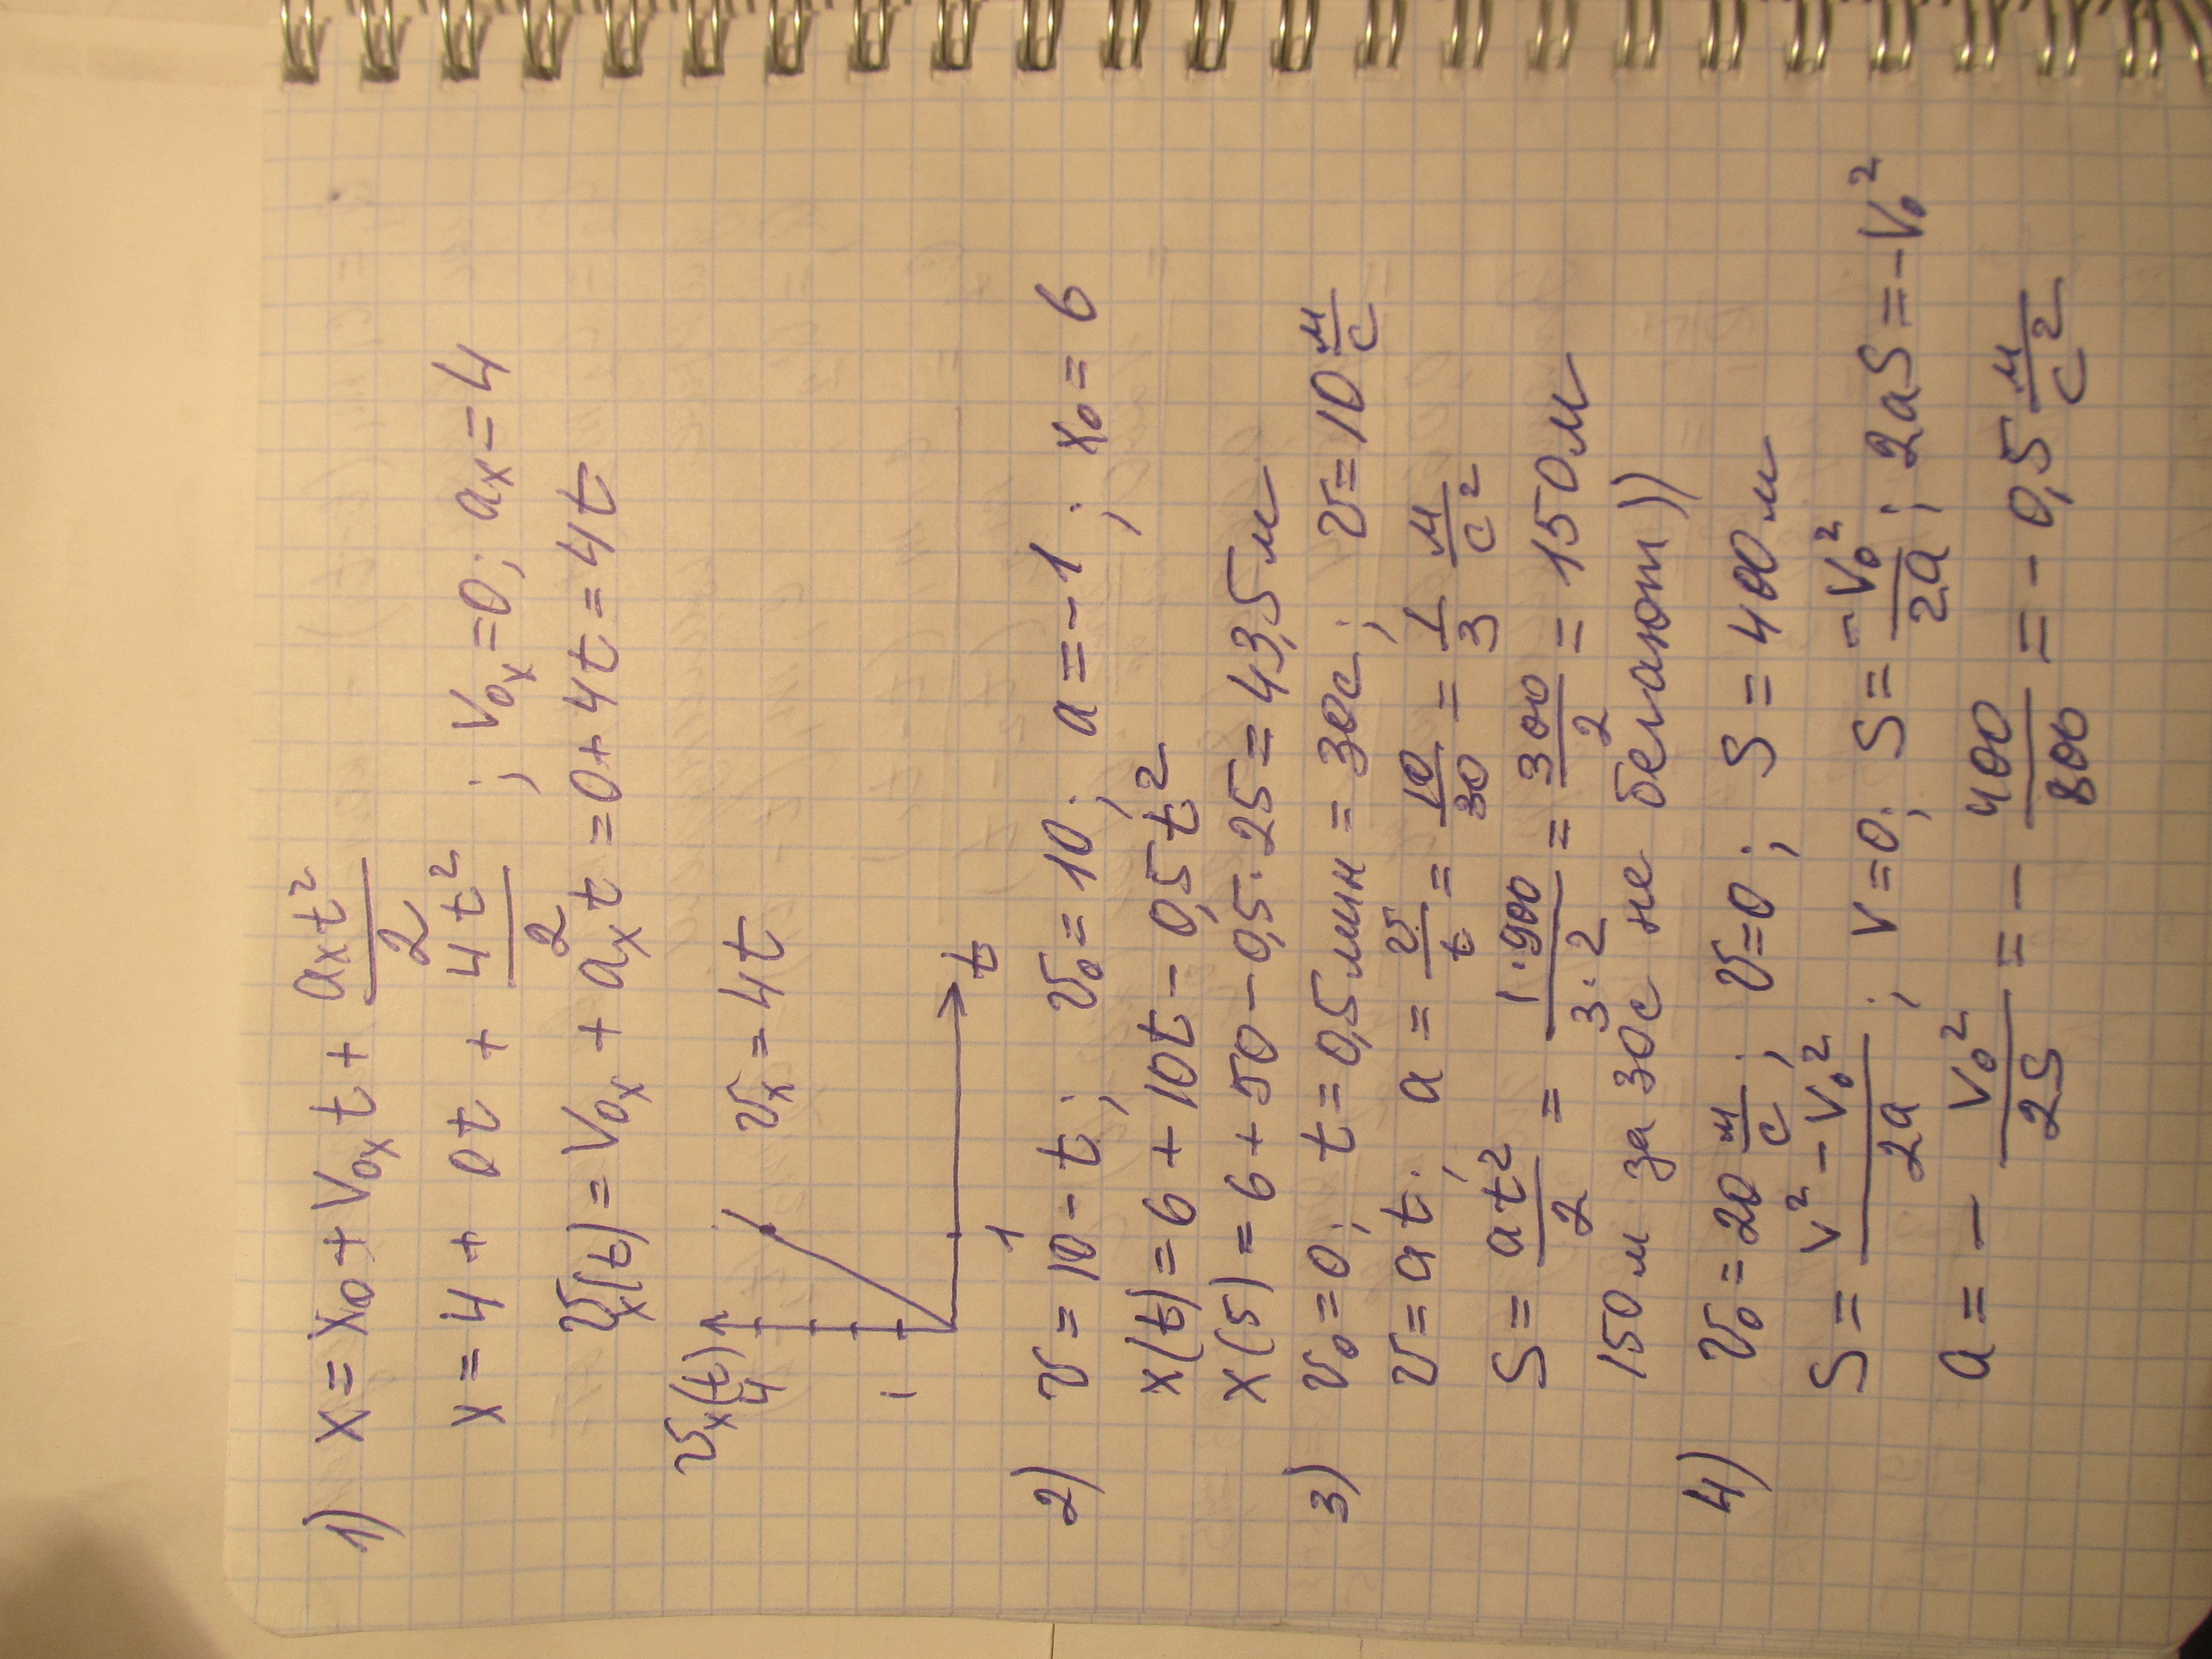 1) x = x₀ + v₀ₓt + aₓt²/2
x = 4 + 0t + 4t²/2 ; v₀ₓ = 0; aₓ = 4
vₓ(t) = v₀ₓ + aₓt = 0 + 4t = 4t
vₓ(t) vₓ = 4t
4
1
1 t
2) v = 10 - t; v₀ = 10; a = -1; x₀ = 6
x(t) = 6 + 10t - 0,5t²
x(5) = 6 + 50 - 0,5·25 = 43,5 м
3) v₀ = 0; t = 0,5 мин = 30с; v = 10 м/с
v = at; a = v/t = 10/30 = 1/3 м/с²
S = at²/2 = 1·900/3·2 = 300/2 = 150 м
150 м за 30с не бегают))
4) v₀ = 20 м/с; v = 0; S = 400 м
S = v² - v₀²/2a; v = 0; S = -v₀²/2a; 2aS = -v₀²
a = - v₀²/2S = - 400/800 = -0,5 м/с²